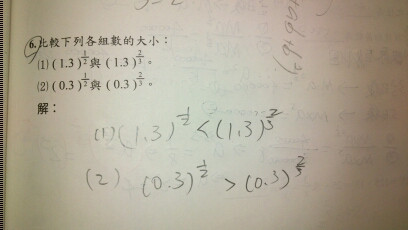 6.比較下列各組數的大小：
(1) (1.3)^{1/2}與 (1.3)^{2/3}。
(2) (0.3)^{1/2}與 (0.3)^{2/3}。
解：
(1) (1.3)^{1/2} < (1.3)^{2/3}
(2) (0.3)^{1/2} > (0.3)^{2/3}